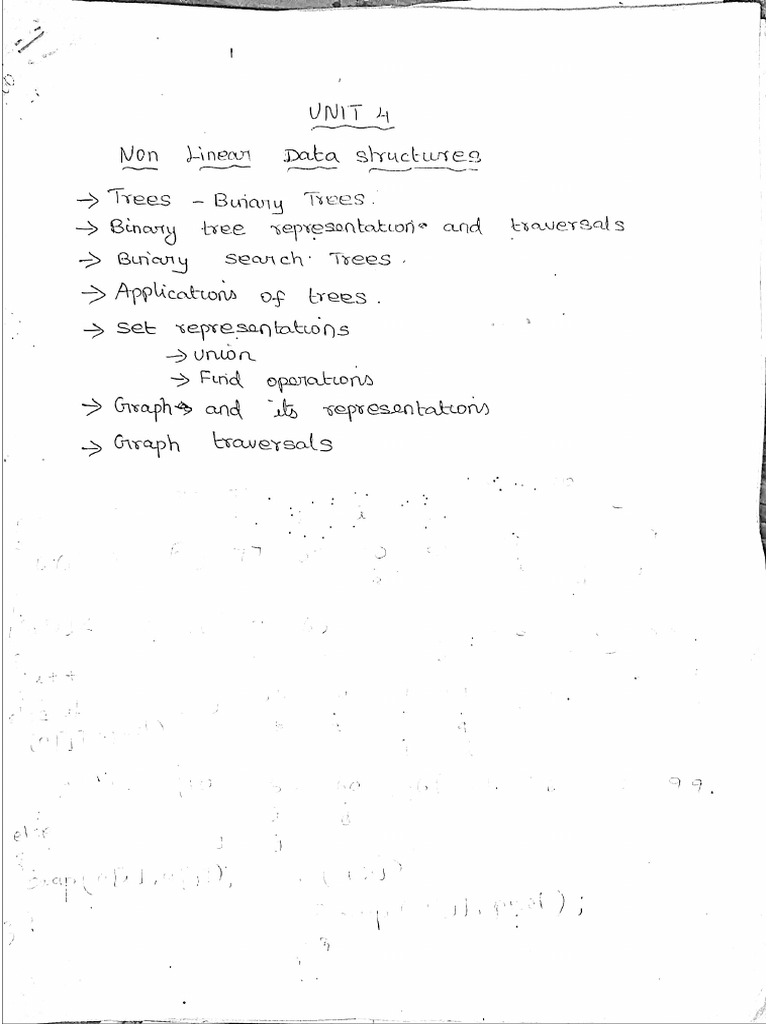 UNIT 4
Non Linear Data structures
→ Trees - Binary Trees.
→ Binary tree representations and traversals
→ Binary search Trees.
→ Applications of trees.
→ set representations
→ union
→ Find operations
→ Graphs and its representations
→ Graph traversals
99.
else